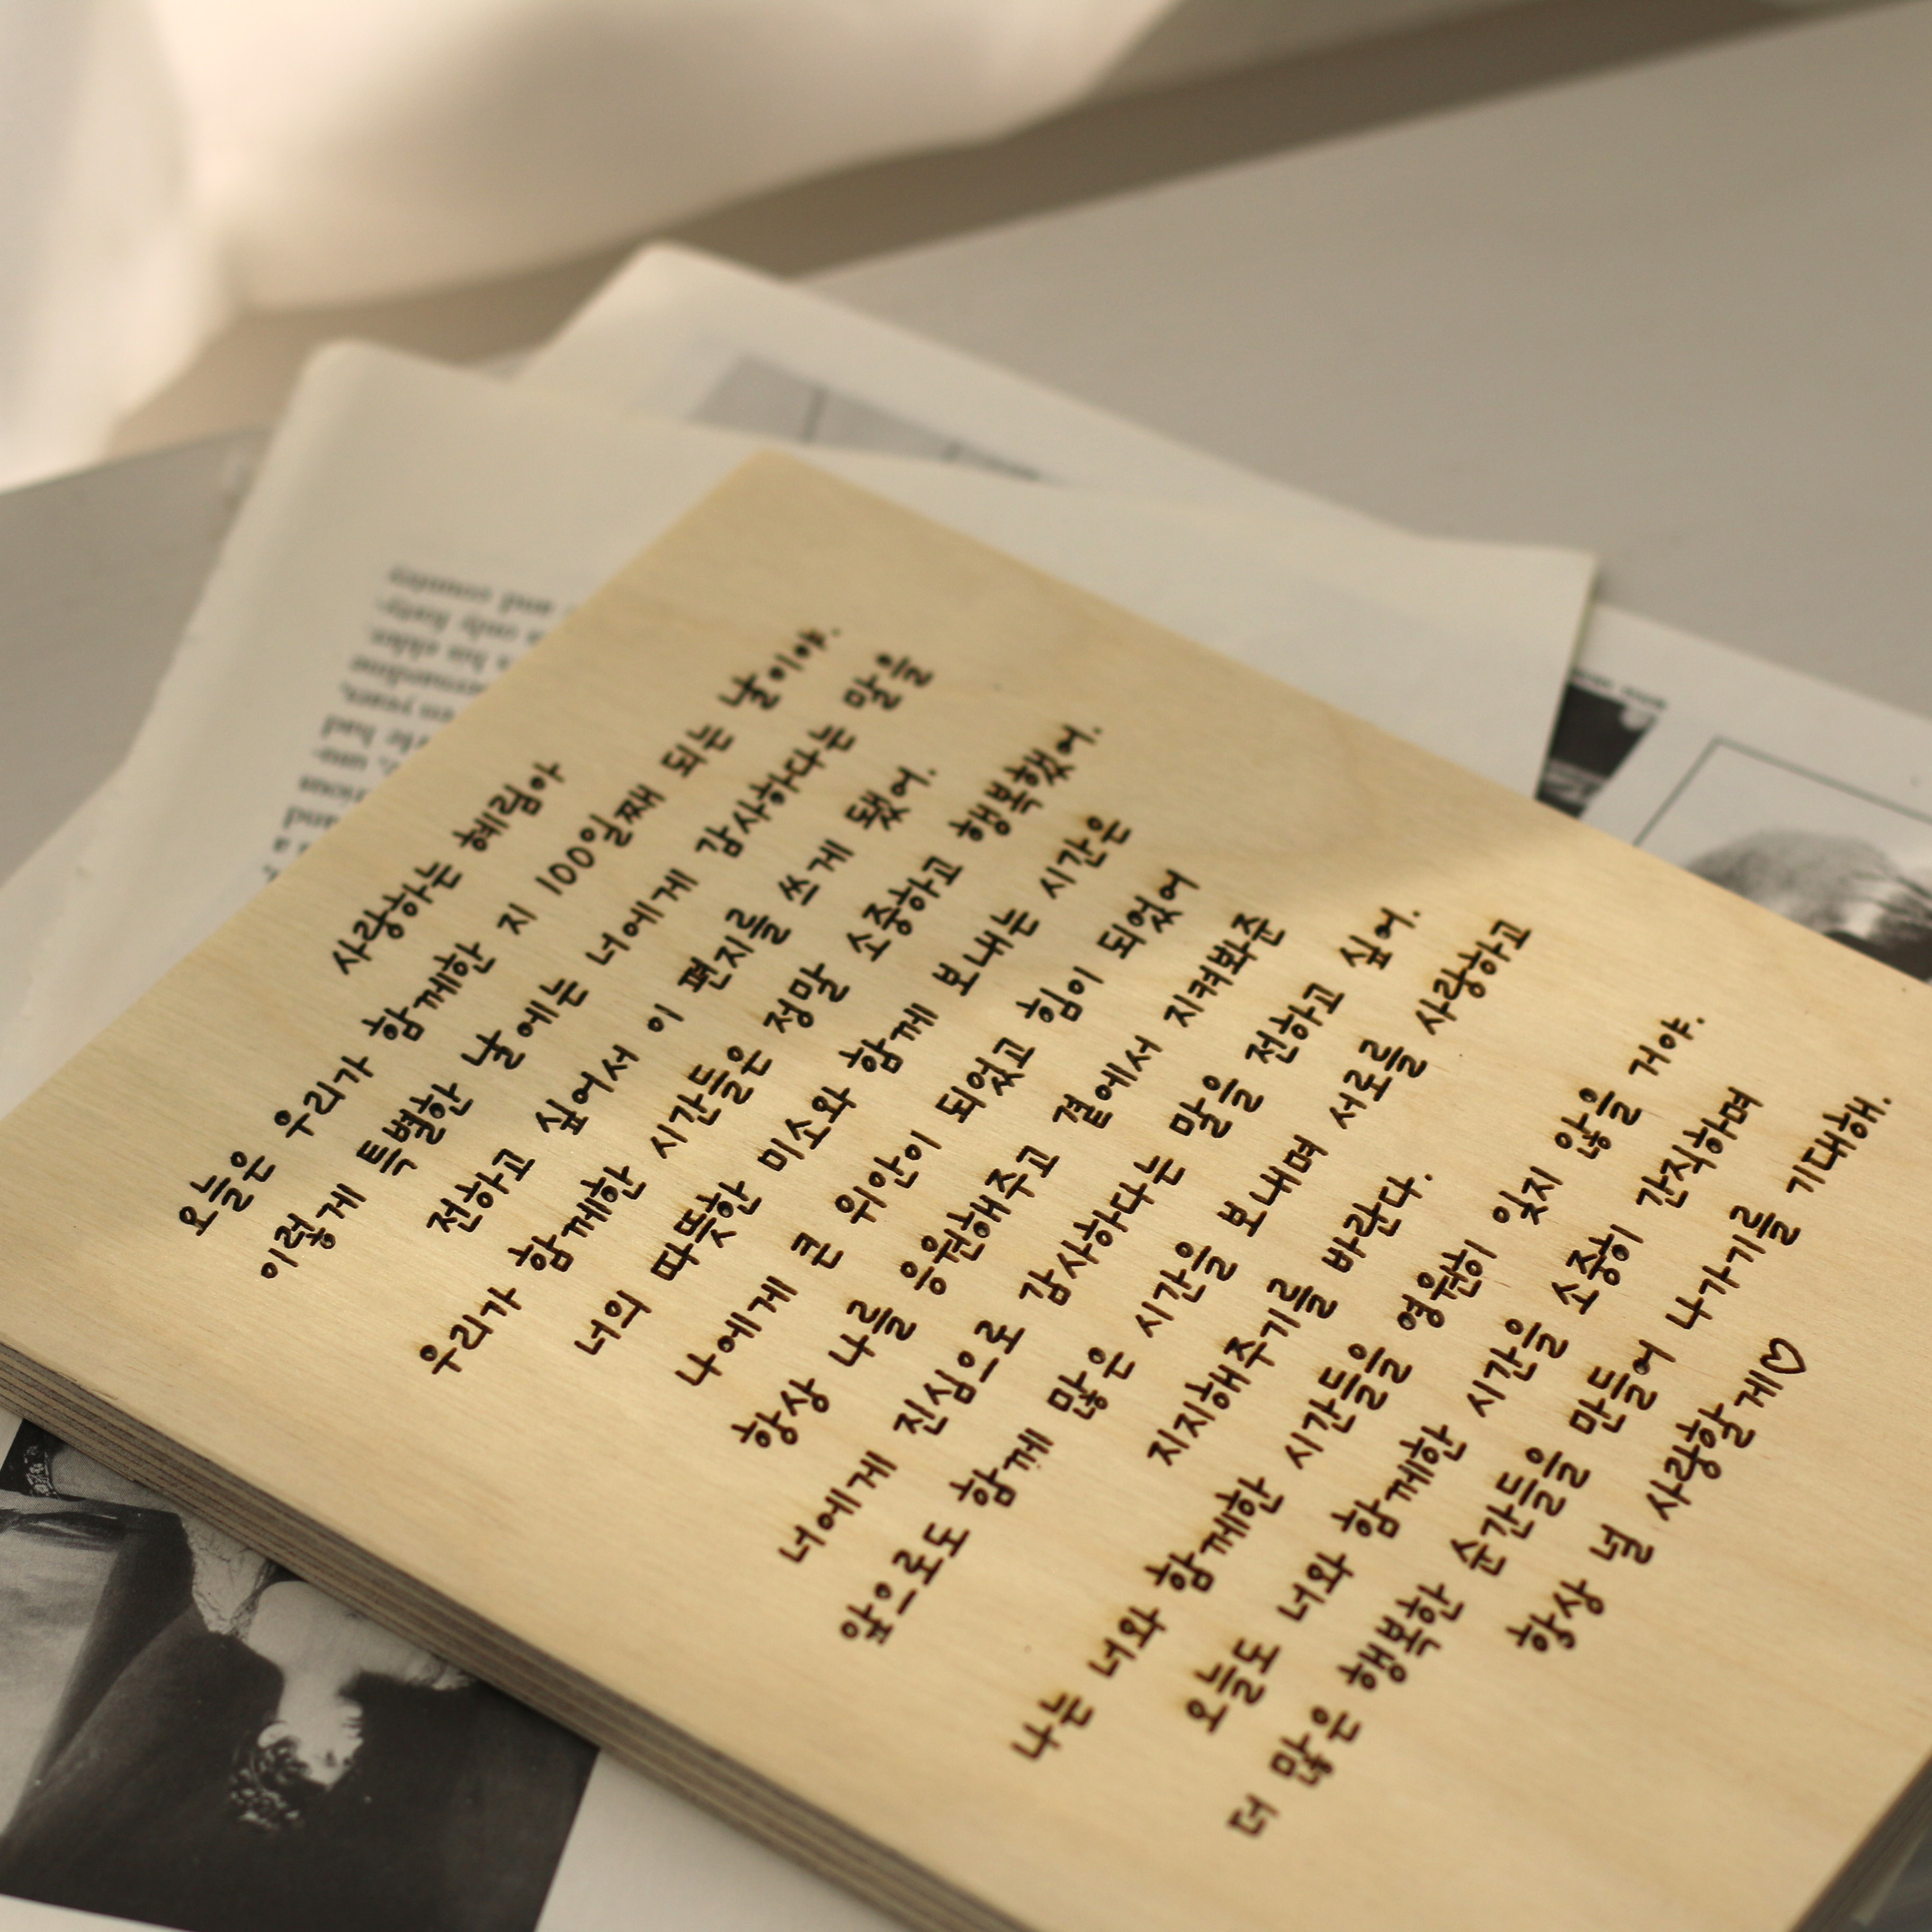 사랑하는 혜림아
오늘은 우리가 함께한 지 100일째 되는 날이야.
이렇게 특별한 날에는 너에게 감사하다는 말을
전하고 싶어서 이 편지를 쓰게 됐어.
우리가 함께한 시간들은 정말 소중하고 행복했어.
너의 따뜻한 미소와 함께 보내는 시간은
나에게 큰 위안이 되었고 힘이 되었어
항상 나를 응원해주고 곁에서 지켜봐준
너에게 진심으로 감사하다는 말을 전하고 싶어.
앞으로도 함께 많은 시간을 보내며 서로를 사랑하고
지지해주기를 바란다.
나는 너와 함께한 시간들을 영원히 잊지 않을 거야.
오늘도 너와 함께한 시간을 소중히 간직하며
더 많은 행복한 순간들을 만들어 나가기를 기대해.
항상 널 사랑할게♡
and
his
had
and
a